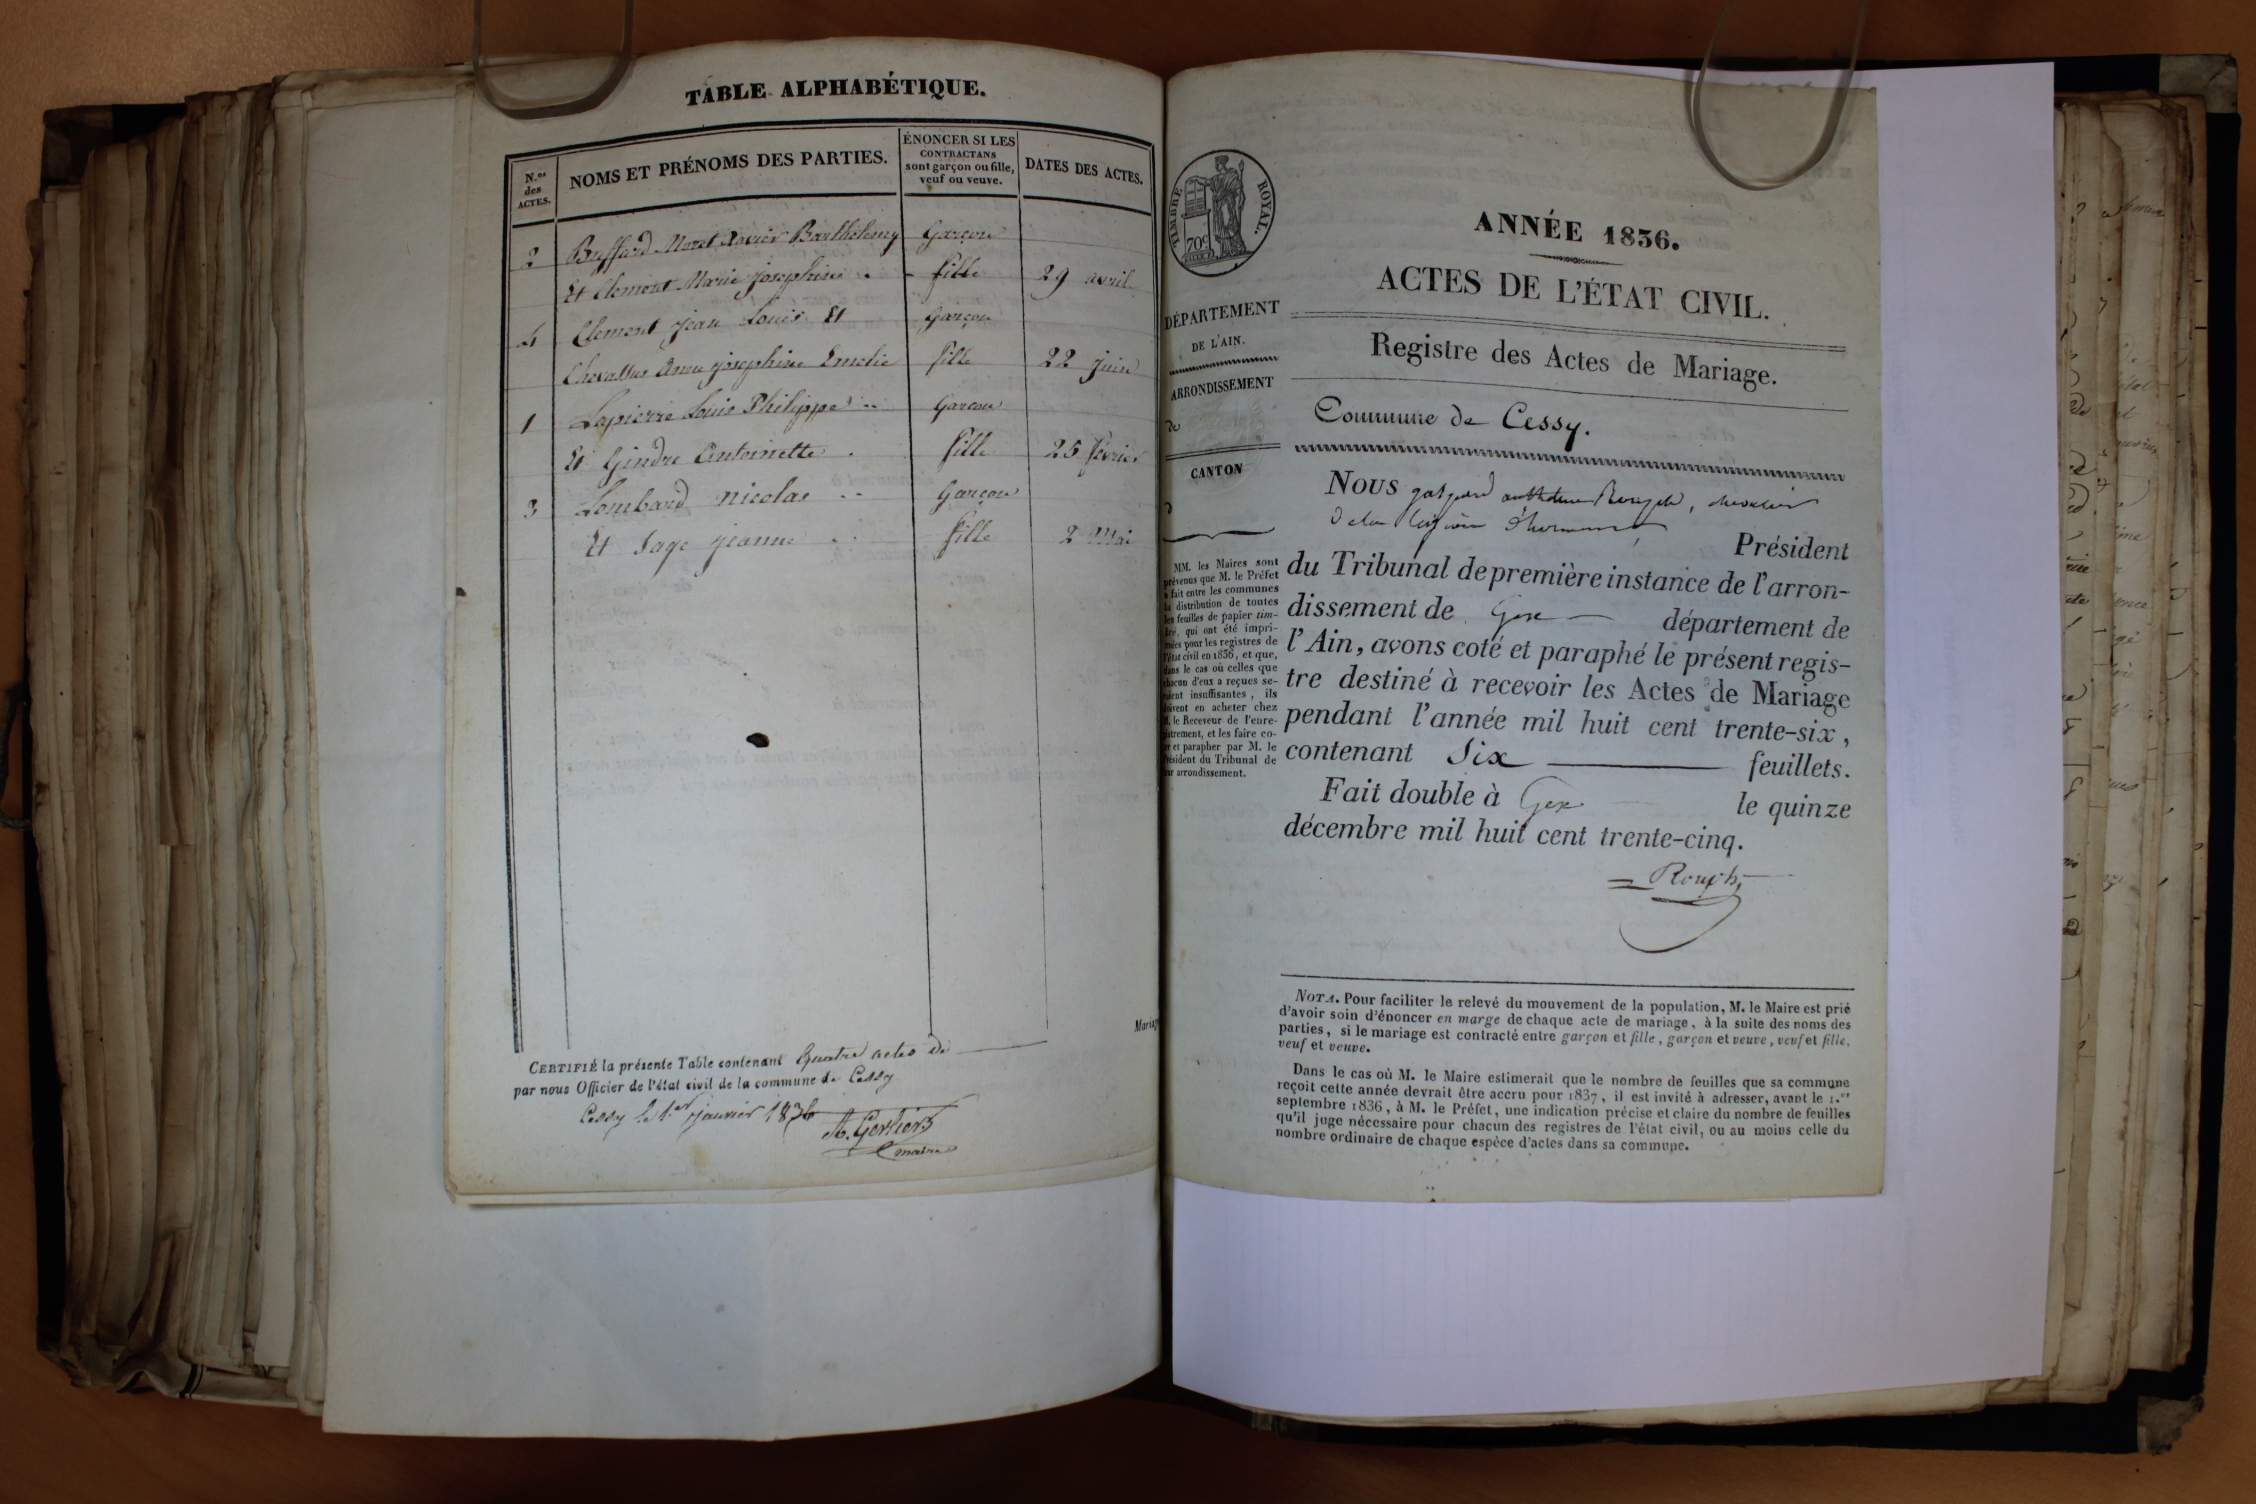 TABLE ALPHABÉTIQUE.
N.os des ACTES.
NOMS ET PRÉNOMS DES PARTIES.
ÉNONCER SI LES CONTRACTANS sont garçon ou fille, veuf ou veuve.
DATES DES ACTES.
2 Buffard Moret Xavier Barthélemy Garçon
Et Clement Marie josephine fille 29 avril
4 Clement jean Louis Et Garçon
Chevallus josephine Emelie fille 22 juin
1 Lapierre Louis Philippe Garcon
Et Gindre Antoinette fille 25 février
3 Lombard nicolas Garçon
Et Sage jeanne fille 2 Mai
Mariag
CERTIFIÉ la présente Table contenant Quatre actes de
par nous Officier de l'état civil de la commune de Cessy
Cessy le 1.er janvier 1836
maire
TIMBRE ROYAL.
70c
DÉPARTEMENT
DE L'AIN.
ARRONDISSEMENT
de
CANTON
d
MM. les Maires sont
prévenus que M. le Préfet
a fait entre les communes
la distribution de toutes
les feuilles de papier tim-
bré, qui ont été impri-
mées pour les registres de
l'état civil en 1836, et que,
dans le cas où celles que
chacun d'eux a reçues se-
raient insuffisantes, ils
doivent en acheter chez
M. le Receveur de l'enre-
gistrement, et les faire co-
ter et parapher par M. le
Président du Tribunal de
leur arrondissement.
ANNÉE 1836.
ACTES DE L'ÉTAT CIVIL.
Registre des Actes de Mariage.
Commune de Cessy.
Nous gaspard Rouph, chevalier
de la légion d'honneur,
Président
du Tribunal de première instance de l'arron-
dissement de Gex département de
l'Ain, avons coté et paraphé le présent regis-
tre destiné à recevoir les Actes de Mariage
pendant l'année mil huit cent trente-six,
contenant Six feuillets.
Fait double à Gex le quinze
décembre mil huit cent trente-cinq.
Rouph
NOTA. Pour faciliter le relevé du mouvement de la population, M. le Maire est prié
d'avoir soin d'énoncer en marge de chaque acte de mariage, à la suite des noms des
parties, si le mariage est contracté entre garçon et fille, garçon et veuve, veuf et fille,
veuf et veuve.
Dans le cas où M. le Maire estimerait que le nombre de feuilles que sa commune
reçoit cette année devrait être accru pour 1837, il est invité à adresser, avant le 1.er
septembre 1836, à M. le Préfet, une indication précise et claire du nombre de feuilles
qu'il juge nécessaire pour chacun des registres de l'état civil, ou au moins celle du
nombre ordinaire de chaque espèce d'actes dans sa commune.